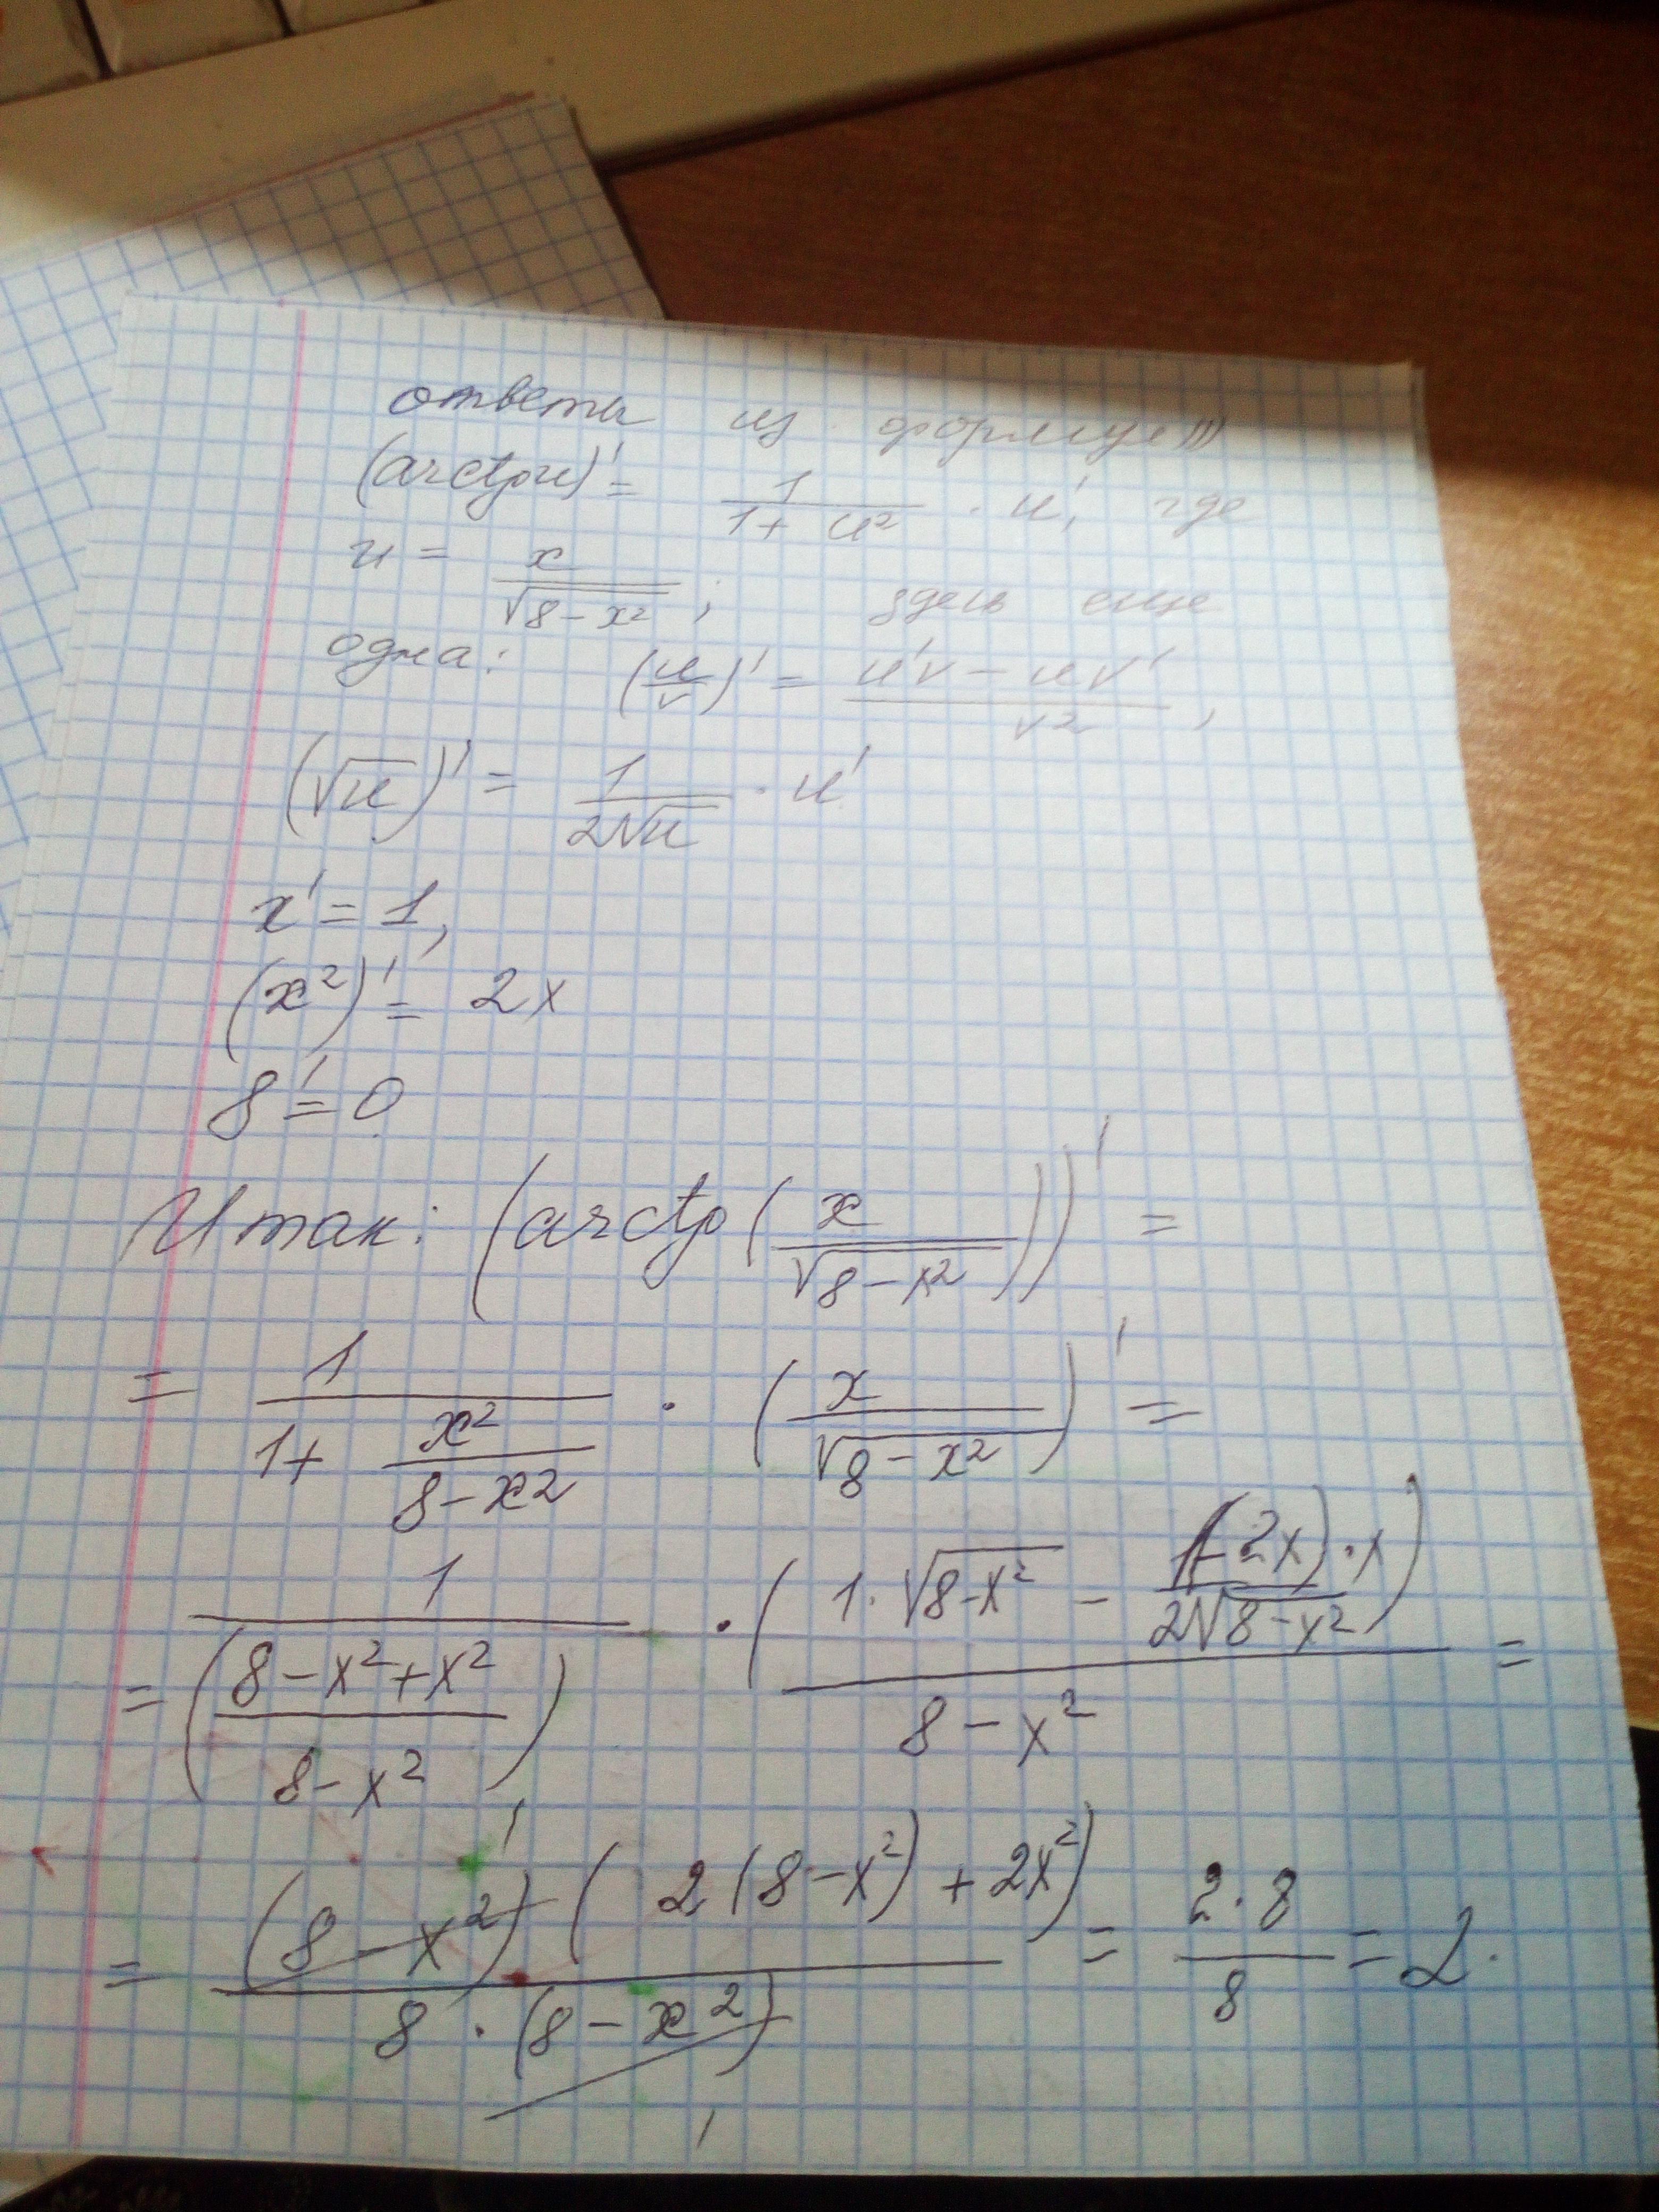 ответы из формул)))
(arctgu)' = 1/(1+u²) · u', где
u = x/√(8-x²); здесь еще
одна: (u/v)' = (u'v - uv')/v²,
(√u)' = 1/(2√u) · u'
x' = 1,
(x²)' = 2x
8' = 0
Итак: (arctg(x/√(8-x²)))' =
= 1/(1+ x²/(8-x²)) · (x/√(8-x²))' =
= 1/((8-x²+x²)/(8-x²)) · (1·√(8-x²) - (-2x)·x/(2√(8-x²)))/(8-x²) =
= (8-x²)(2(8-x²)+2x²)/(8·(8-x²)) = 2·8/8 = 2.